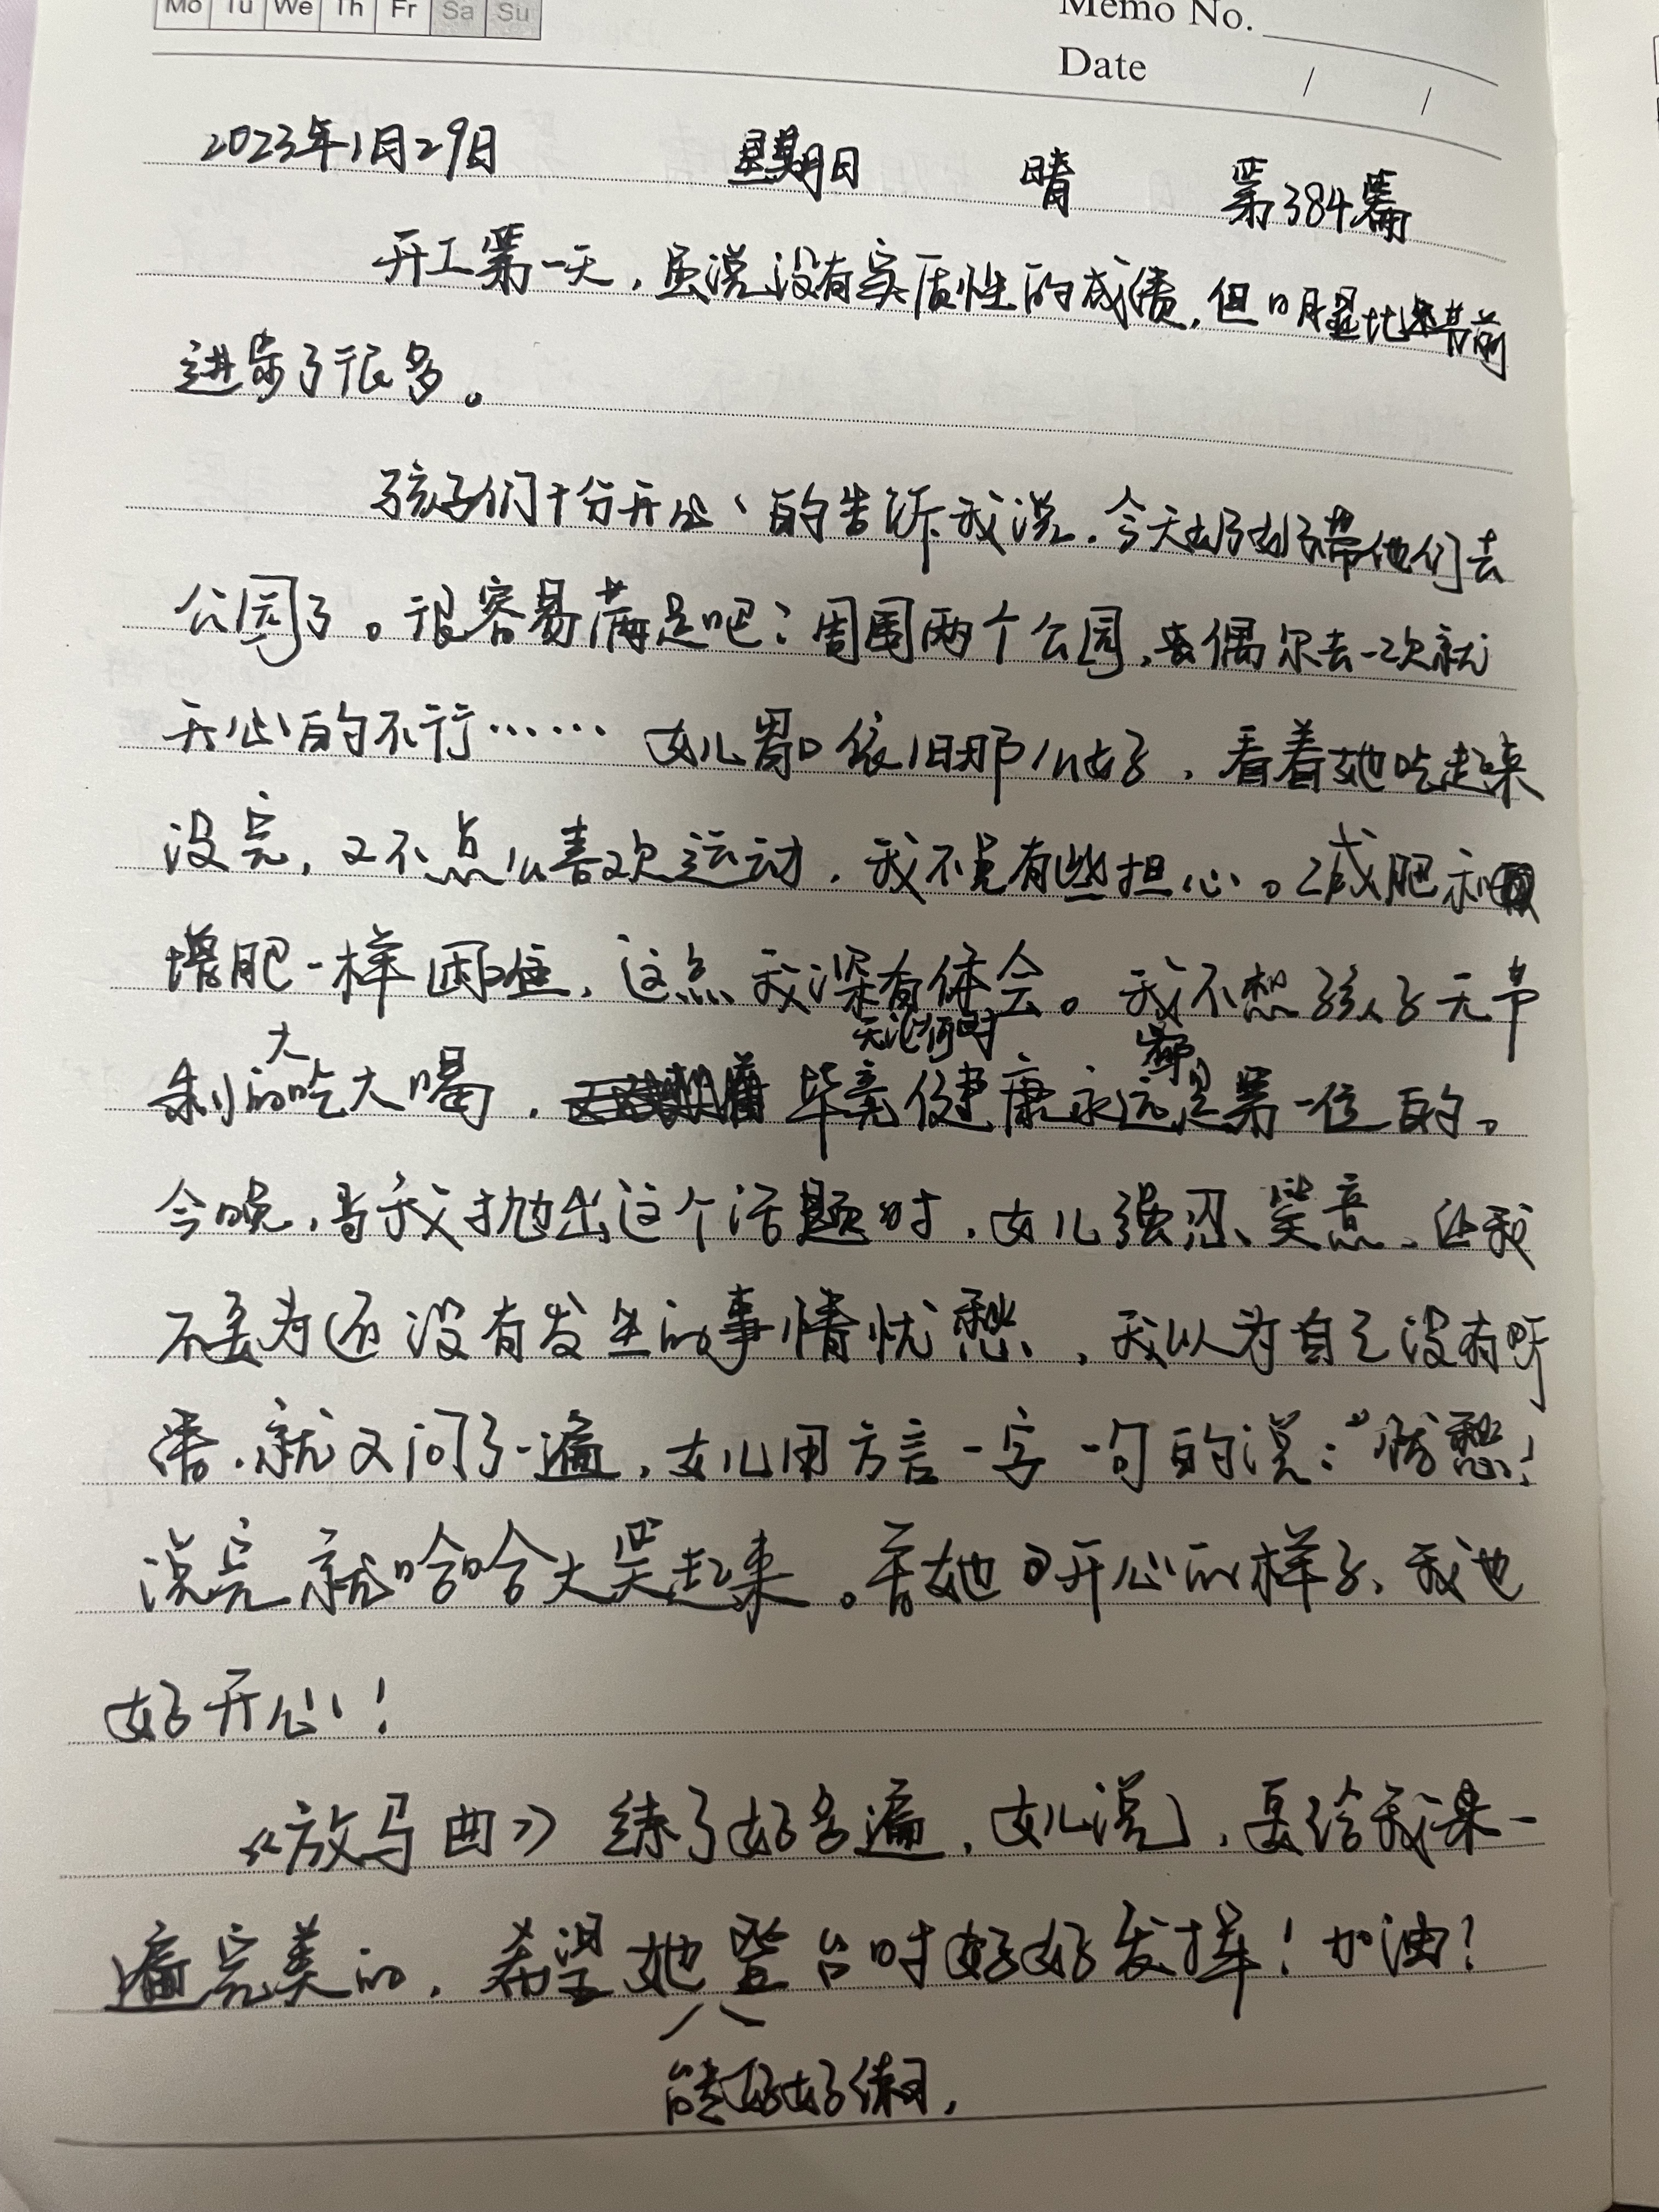 Mo Tu We Th Fr Sa Su
Memo No.
Date / /
2023年1月29日 星期日 晴 第384篇
开工第一天,虽说没有实质性的成绩,但明显比年前
进步了很多。
孩子们十分开心的告诉我说,今天奶奶带他们去
公园了。很容易满足吧?周围两个公园,去偶尔去一次就
开心的不行…… 女儿胃口依旧那么好,看着她吃起来
没完,又不怎么喜欢运动,我不免有些担心。减肥和
增肥一样困难,这点我深有体会。我不想孩子无节
制的大吃大喝,毕竟无论何时健康永远都是第一位的。
今晚,当我抛出这个话题时,女儿强忍笑意,让我
不要为还没有发生的事情忧愁,我以为自己没有听
清,就又问了一遍,女儿用方言一字一句的说:“忧愁!
说完就哈哈大笑起来。看她开心的样子,我也
好开心!
《放马曲》练了好多遍,女儿说,要给我录一
遍完美的,希望她能好好练习,登台时好好发挥!加油!